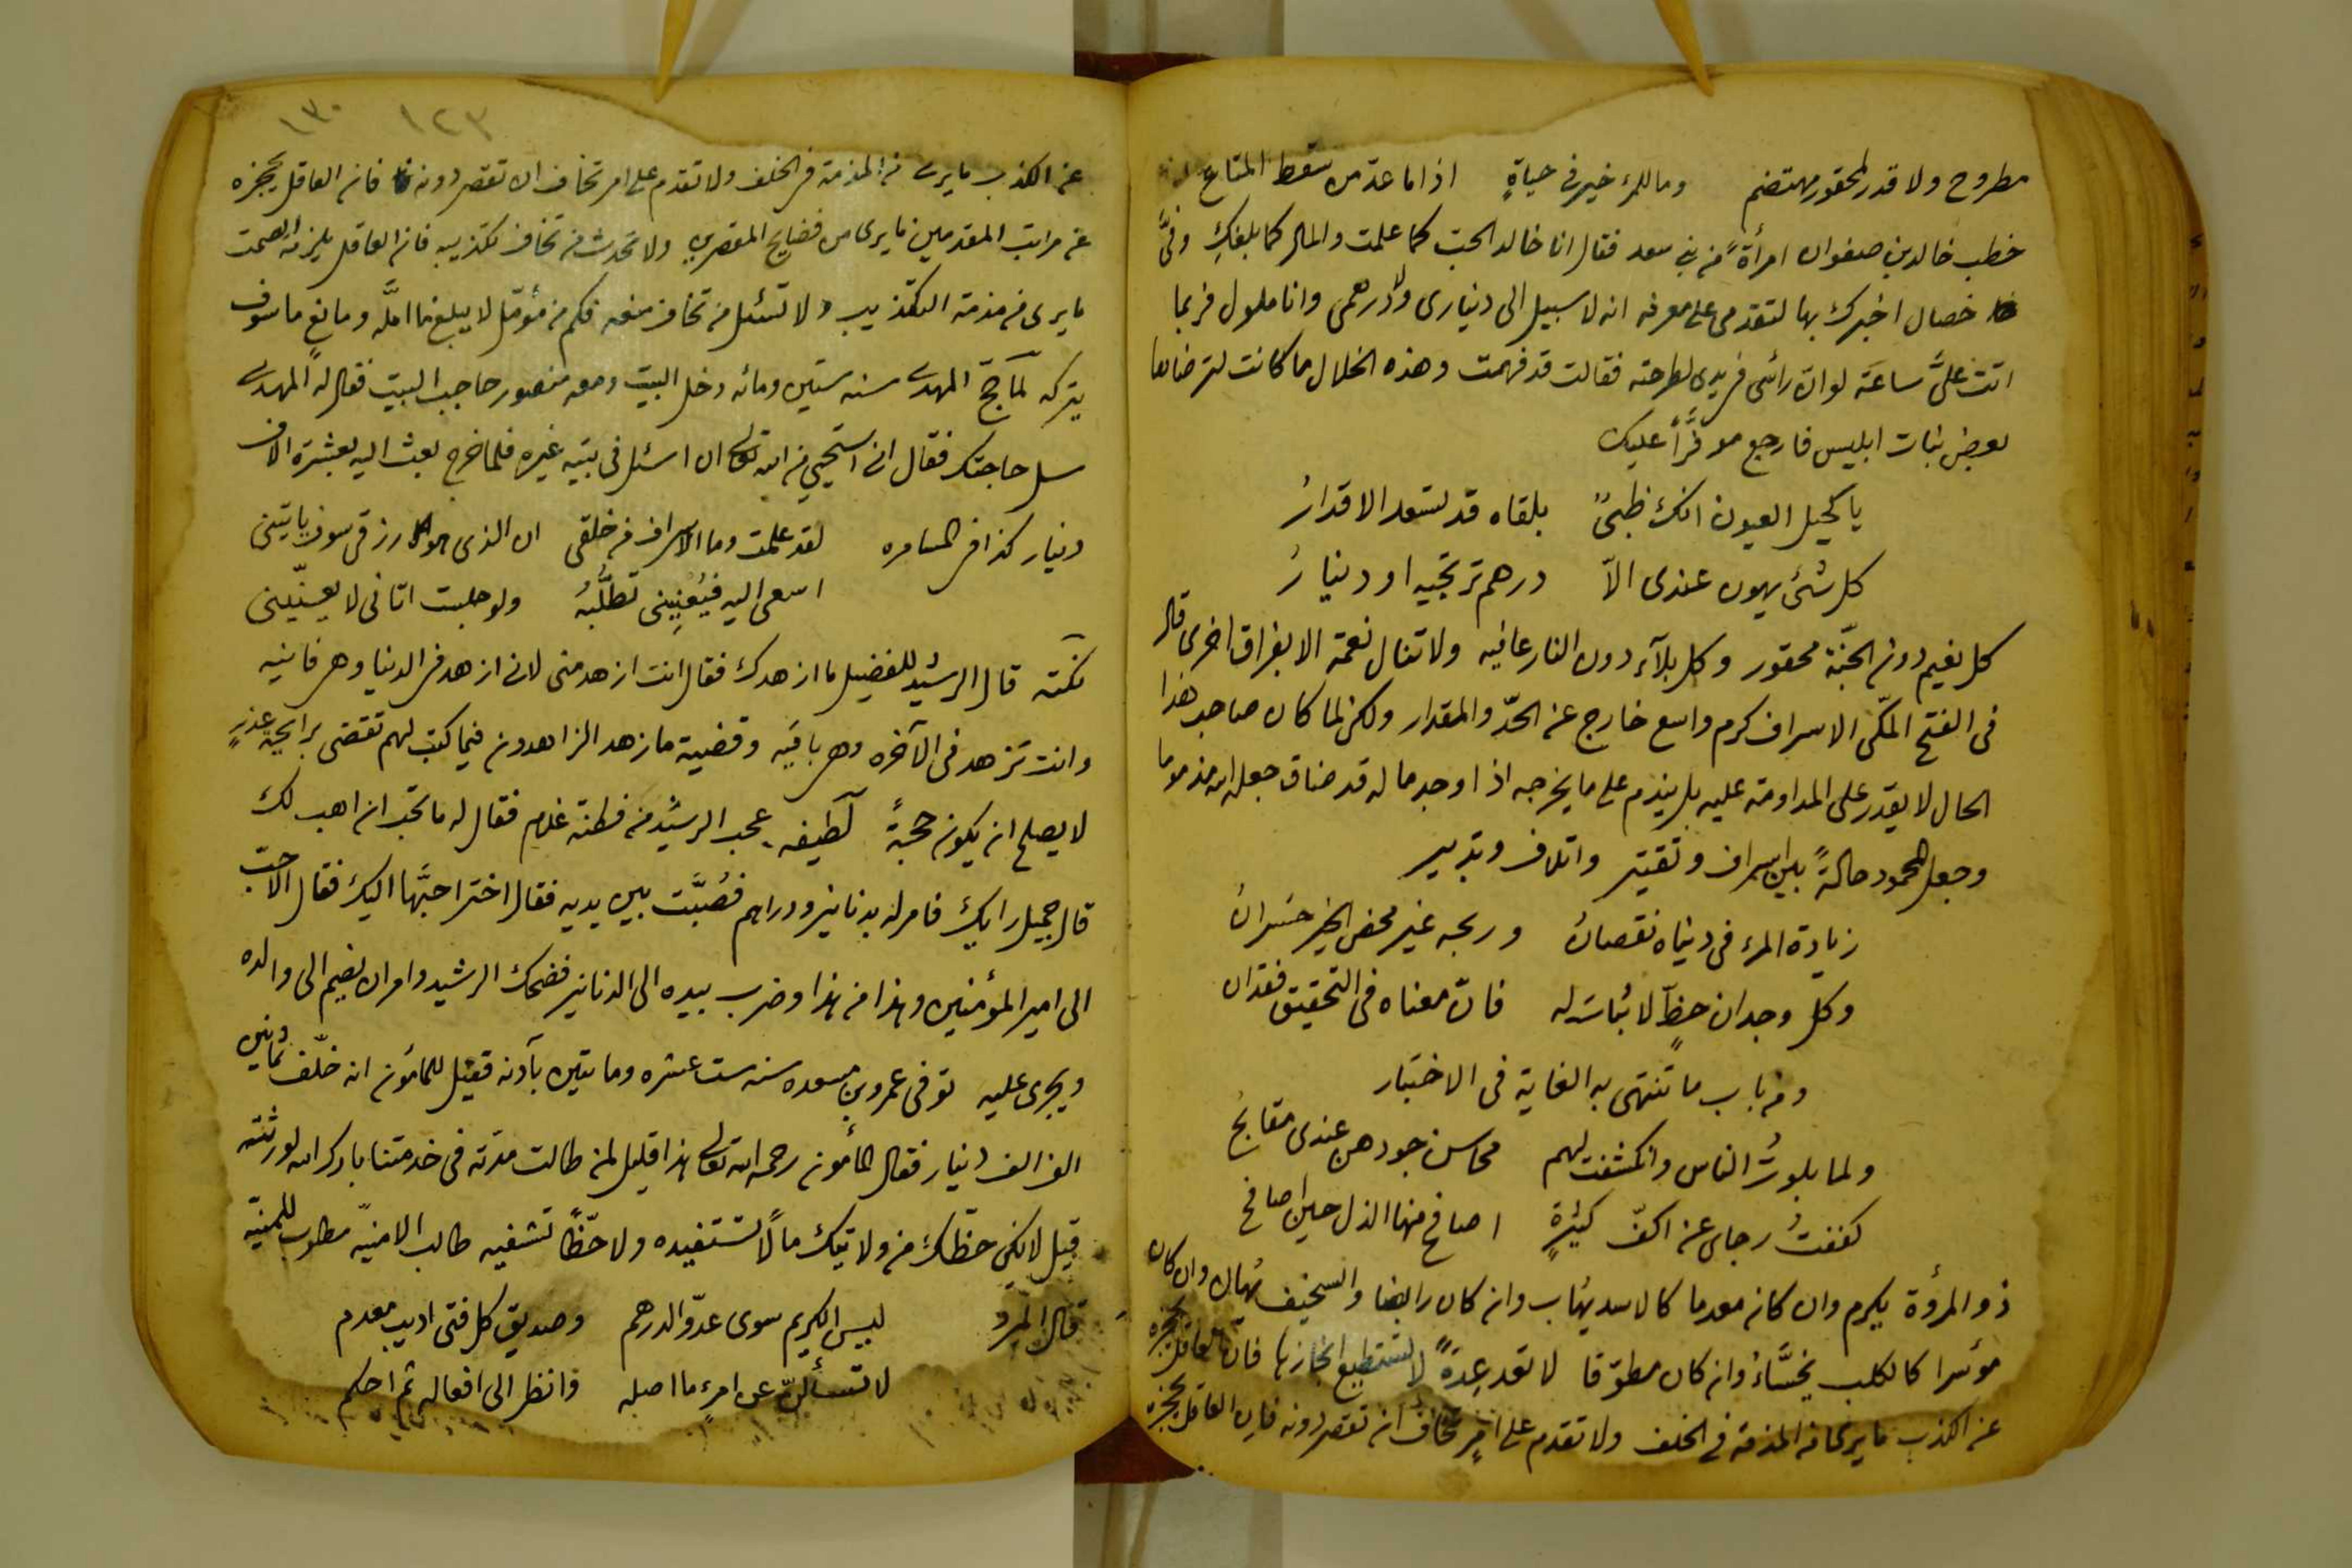 مطروح ولا قدر لمحقور مهتضم وما للمرء خير فى حياةٍ اذا ما عدّ من سقط المتاع
خطب خالد بن صفوان امرأةً من بنى سعد فقال انا خالد الحسب كما علمت والمال كما بلغك وفىَّ
خصال اخبرك بها لتقدمى على معرفه انه لا سبيل الى دينارى ولا درهمى وانا ملول فربما
اتت علىَّ ساعة لو ان رأسى فى يدى لطرحته فقالت قد فهمت وهذه الخلال ما كانت لترضاها
بعض بنات ابليس فارجع موفَّراً عليك
يا كحيل العيون انك ظبىٌ بلقاه قد تسعد الاقدارُ
كل شئ يهون عندى الاّ درهم ترتجيه او دينارُ
كل نعيم دون الجنّة محقور وكل بلآء دون النار عافيه ولا تنال نعمة الا بفراق اخرى قال
فى الفتح المكّى الاسراف كرم واسع خارج عن الحدّ والمقدار ولكن لما كان صاحب هذا
الحال لا يقدر على المداومة عليه بل يندم على ما يخرجه اذا وجد ماله قد ضاق جعله الله مذموما
وجعل المحمود حالةً بين اسراف وتقتير واتلاف وتدبير
زيادة المرء فى دنياه نقصانُ وربحه غير محض الخير خسرانُ
وكل وجدان حظٍّ لا ثبات له فانّ معناه فى التحقيق فقدان
ومن باب ما تنتهى به الغاية فى الاختبار
ولما بلوتُ الناس وانكشفت لهم محاسن جودهن عندى مقابحُ
كففتُ رجاى عن اكفّ كثيرةٍ اصافح منها الذل حين اصافح
ذو المرؤة يكرم وان كان معدما كالاسد يهاب وان كان رابضا والسخيف يهان وان كان
مؤسرا كالكلب يخسَّأ وان كان مطوّقا لا تعد عدةً لا تستطيع انجازها فان العاقل يحجزه
عن الكذب ما يرى من المذمة فى الخلف ولا تقدم على امرٍ تخاف ان تقصر دونه فان العاقل يحجزه
١٢٣ ١٣٠
عن الكذب ما يرى من المذمة فى الخلف ولا تقدم على امر تخاف ان تقصر دونه فان العاقل يحجزه
عن مراتب المقدمين ما يرى من فضايح المقصرين ولا تحدث من تخاف تكذيبه فان العاقل يلزمه الصمت
ما يرى من مذمة التكذيب ولا تسئل من تخاف منعه فكم من مؤمّل لا يبلغ ما امَّله ومانع ما سوف
يتركه لمّا حجّ المهدى سنه ستين ومائه دخل البيت ومعه منصور حاجب البيت فقال له المهدى
سل حاجتك فقال انى استحيى من الله تعالى ان اسئل فى بيته غيره فلما خرج بعث اليه بعشرة الاف
دينار كذا فى المسامره لقد علمت وما الاسراف من خلقى ان الذى هو رزقى سوف ياتينى
اسعى اليه فيُعنينى تطلُّبُه ولو جلست اتانى لا يعنّينى
نكته قال الرشيد للفضيل ما ازهدك فقال انت ازهد منى لانى ازهد فى الدنيا وهى فانيه
وانت تزهد فى الآخره وهى باقيه وقضية ما زهد الزاهدون فيما كتب لهم تقتضى عذرٍ
لا يصلح ان يكون حجةً لطيفه عجب الرشيد من فطنة غلام فقال له ما تحب ان اهب لك
قال جميل رايك فامر له بدنانير ودراهم فصُبَّت بين يديه فقال اختر احبَّها اليك فقال الاحبّ
الى امير المؤمنين وهذا من هذا وضرب بيده الى الدنانير فضحك الرشيد وامر ان يضم الى والده
ويجرى عليه توفى عمرو بن مسعده سنه ست عشره ومايتين بآدنه فقيل للمأمون انه خلّف ثمانين
الف الف دينار فقال المأمون رحمه الله تعالى هذا قليل لمن طالت مدّته فى خدمتنا بارك الله لورثته
قيل لا يكن حظّك من ولايتك مالاً تستفيده ولا حظّاً تشفيه طالب الامنيّه مطلوب للمنيّه
قال المبرد ليس الكريم سوى عدوّ الدرهم وصديق كل فتى اديب معدم
لا تسألنّ عن امرءٍ ما اصله وانظر الى افعاله ثم احكم